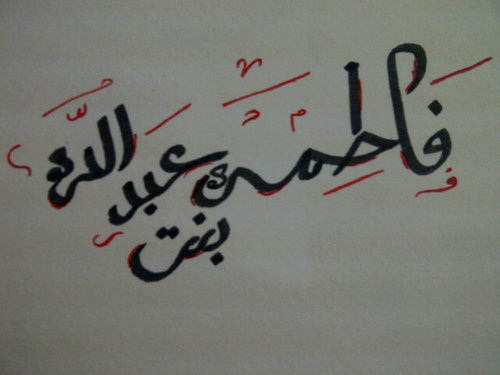 فاطمة بنت عبد الله